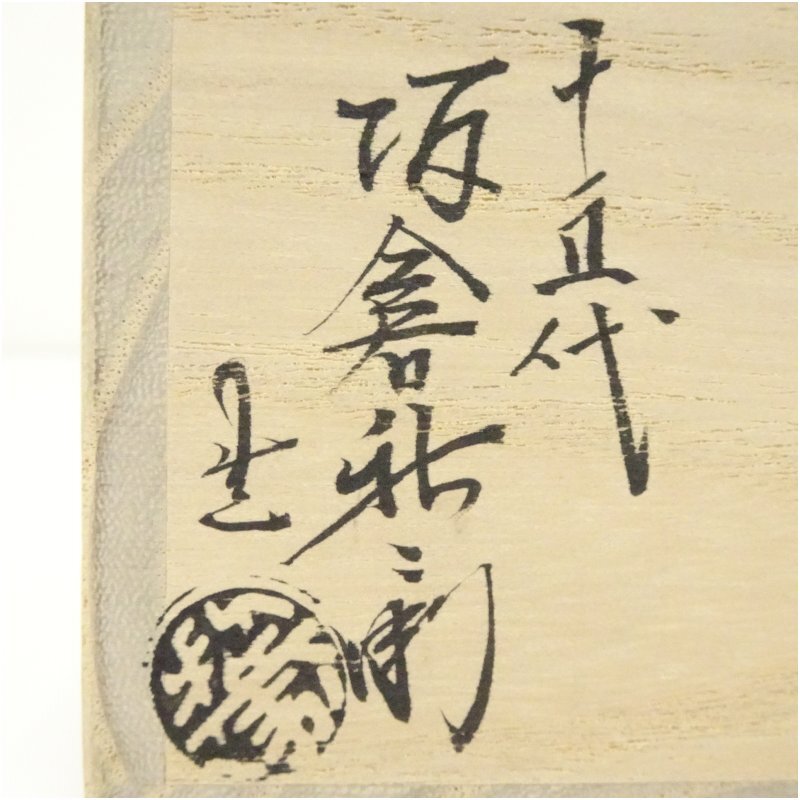 十五代
坂倉新兵衛
造